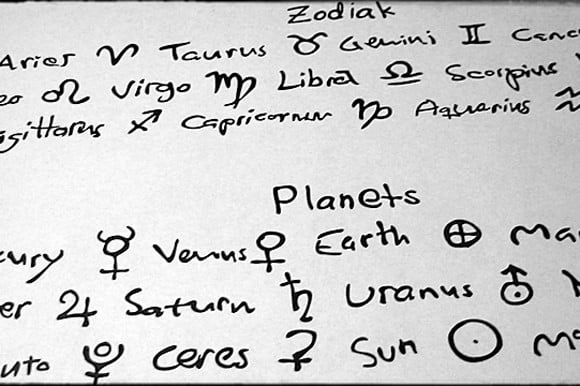 Zodiak
Aries ♈ Taurus ♉ Gemini ♊ Canc
eo ♌ Virgo ♍ Libra ♎ Scorpius
gittarus ♐ Capricornun ♑ Aquarius ♒
Planets
cury ☿ Venus ♀ Earth ⊕ Ma
er ♃ Saturn ♄ Uranus ⛢
uto ⯓ Ceres ⚳ Sun ☉ Mo